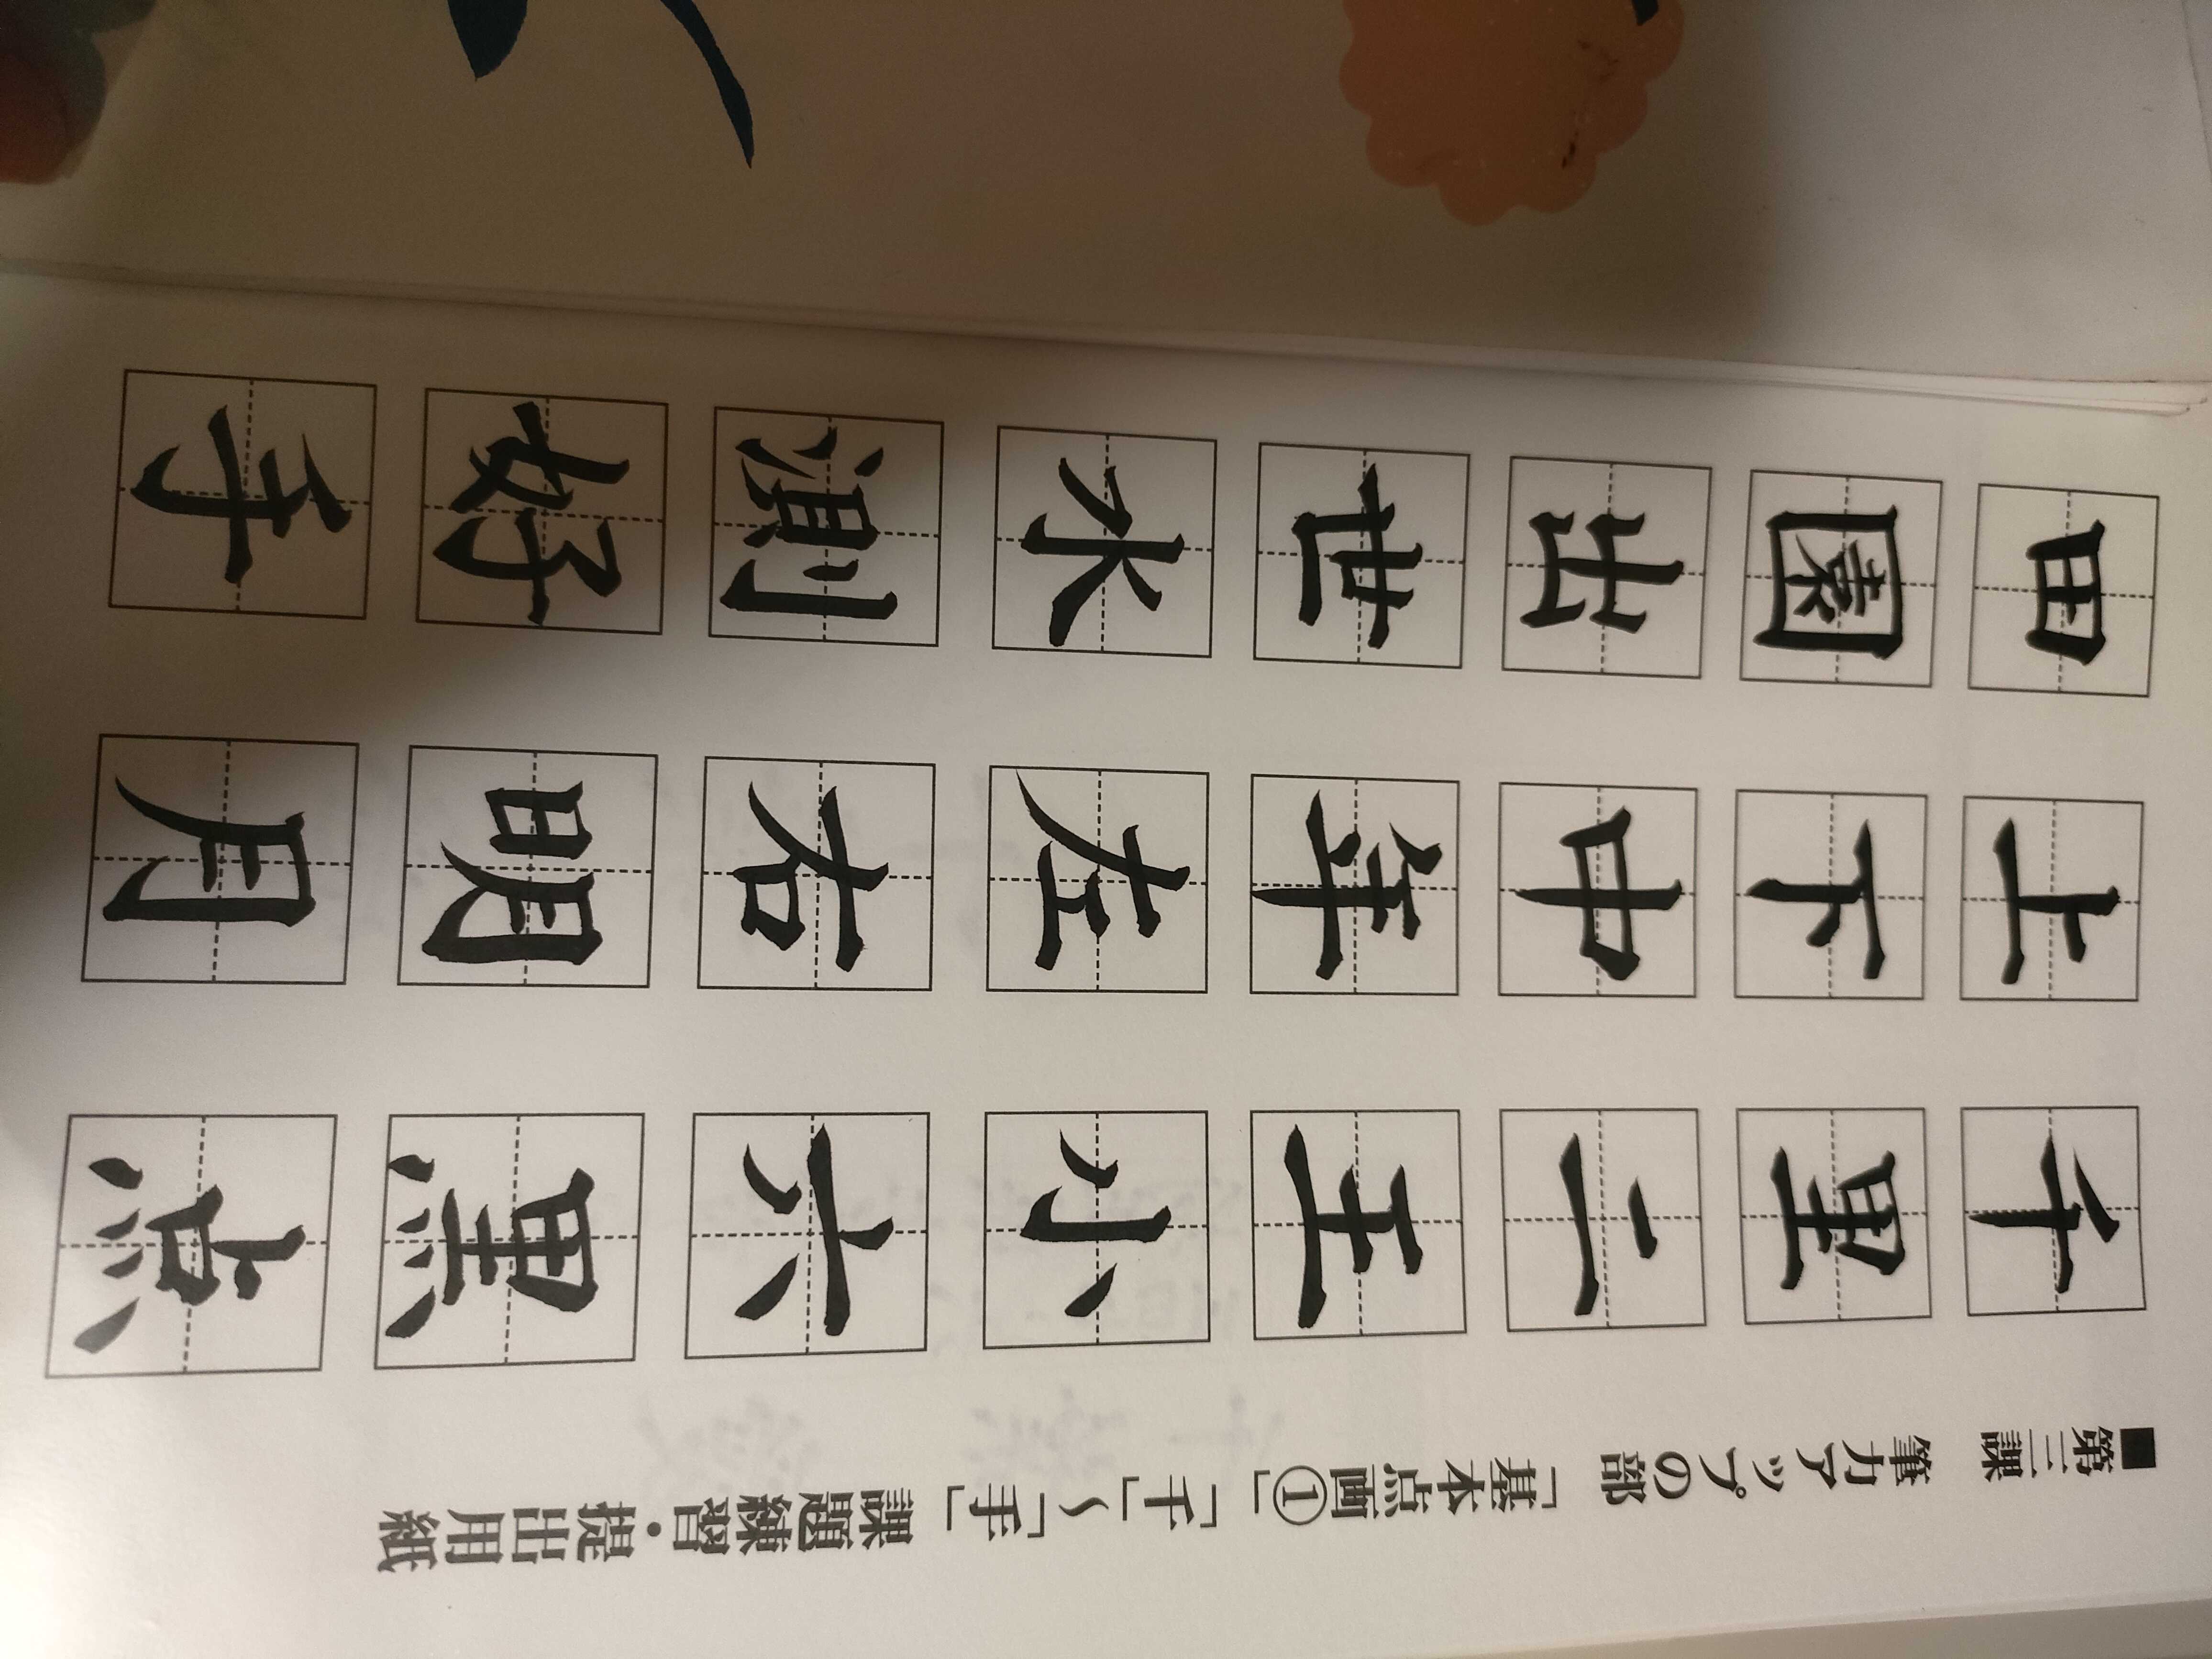 ■第三課　筆力アップの部　「基本点画①」「千」〜「手」　課題練習・提出用紙
千里二王小六黒点
上下中年左右明月
田園出世水測好手